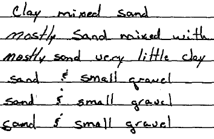 Clay mixed sand
mostly sand mixed with
mostly sand very little clay
sand & small gravel
sand & small gravel
sand & small gravel